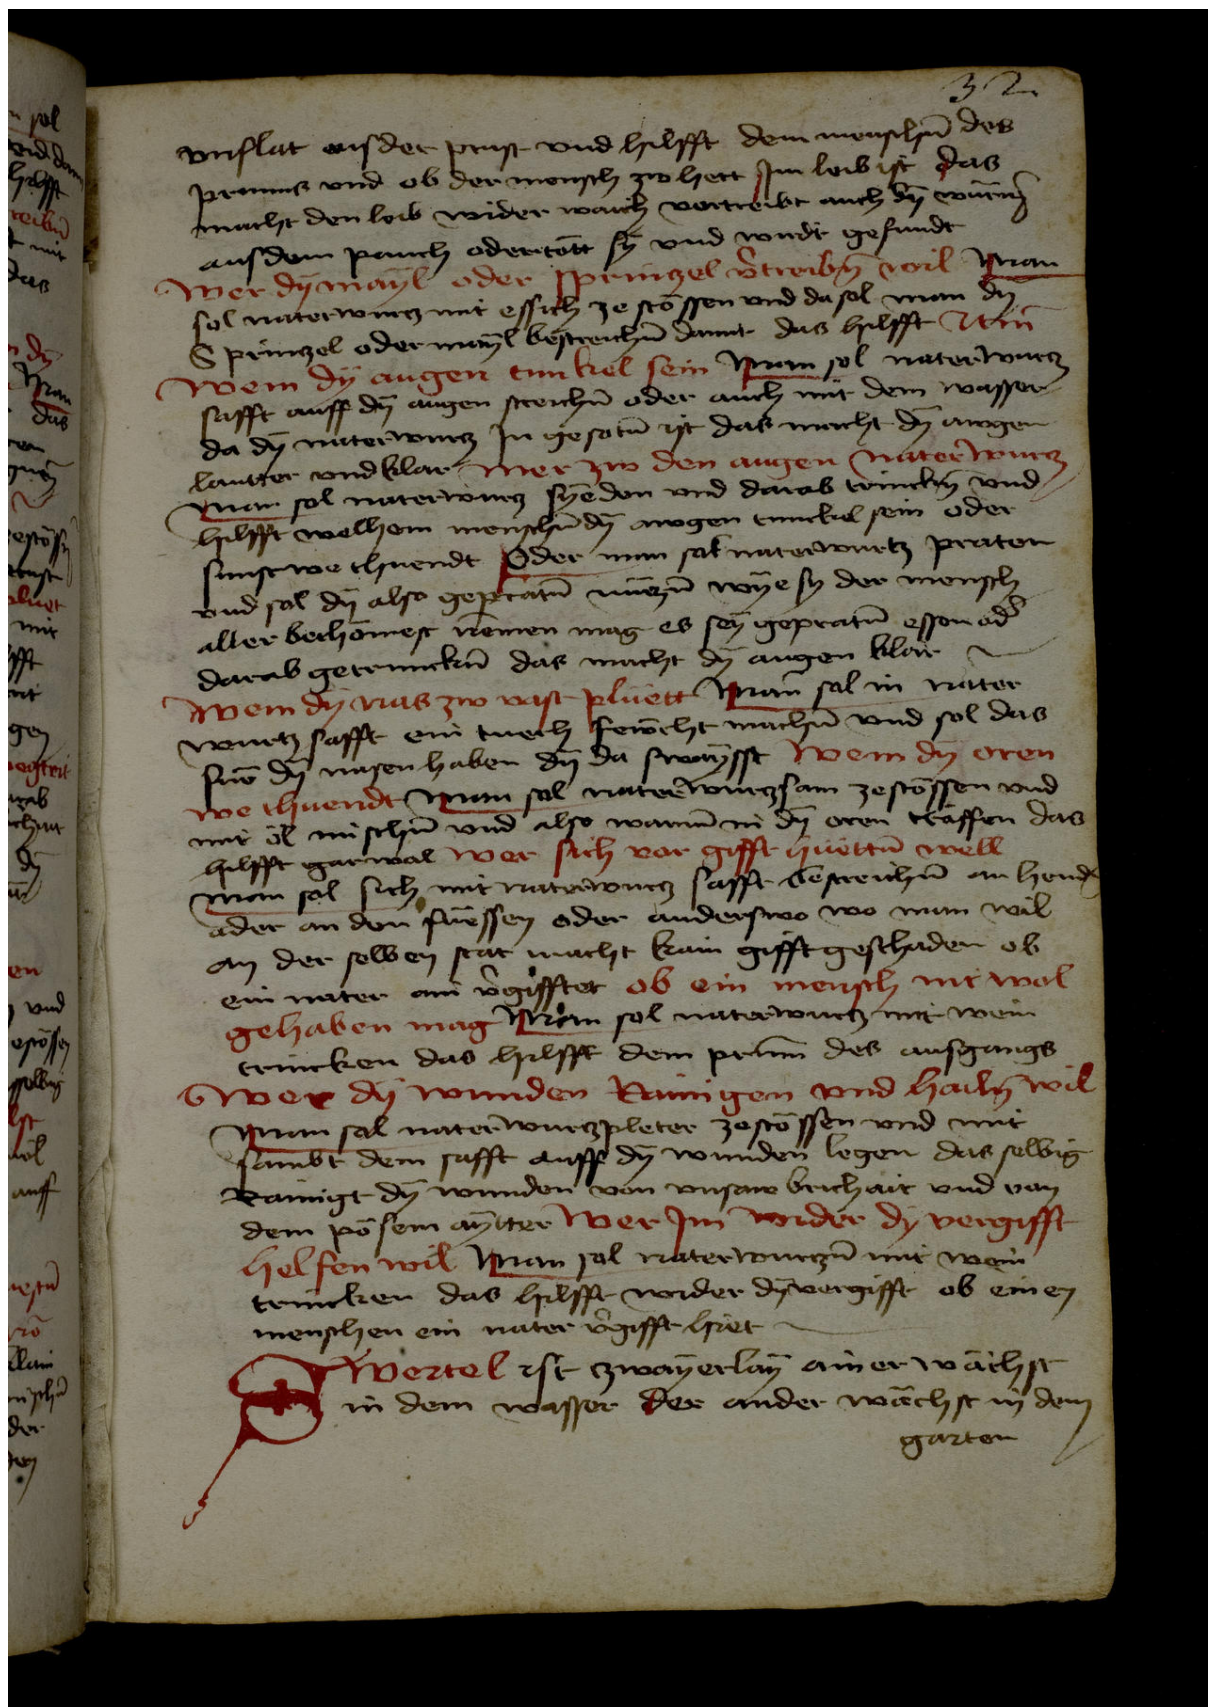 32
vnflat aus der prust vnd hilfft dem menschn̄ des
prunns vnd ob der mensch zw hert Jm leib ist das
macht den leib wider waich vertreibt auch dÿ würm̄
aus dem pauch oder tött sÿ vnd wirdt gesundt
Wer dÿ mayl oder sprinzel v̄treibn̄ wil Man
sol naterwurcz mit essich zestössen vnd da sol man dy
Sprinzel oder mayl bestreichn̄ damit das hilfft
Wem dÿ augen tunkel sein Man sol naterwurcz
safft auff dÿ augen streichn̄ oder auch mit dem wasser
da dÿ naterwurcz Jn gesotn̄ ist das macht dÿ awgen
lautter vnd klar Mer zw den augen naterwurcz
Man sol naterwurcz syeden vnd darab trinckn̄ vnd
hilfft welhem menschn̄ dÿ awgen tunckel sein oder
sunst we thuendt Oder man sol naterwurtz praten
vnd sol dÿ also gepratn̄ nüczn̄ wÿe sy der mensch
aller bechömest nemen mag es seÿ gepratn̄ essen od̄
darab getrunckn̄ das macht dÿ augen klar
Wem dÿ nas zw vast plüett Man sol in nater
wurtz safft ein tuech fewcht machn̄ vnd sol das
für dÿ nasen haben dÿ da swaysst Wem dÿ oren
we thuendt Man sol naterwurcz sam zestössen vnd
mit öl mischn̄ vnd also warm̄ in dÿ oren träffen das
hilfft gar wol Wer sich vor gifft hüettn̄ well
Man sol sich mit naterwurcz safft bestreichn̄ an hend
ader an den füessen oder anderswo wo man wil
an der selben stat macht kain gifft geschaden ob
ein nater ain v̄gifftet ob ein mensch nit wol
gehaben mag Man sol naterwurcz mit wein
trincken das hilfft dem prunn des ausgangs
Wer dÿ wunden Rainigen vnd hailn̄ wil
Man sol naterwurcz pleter zestössen vnd mit
sambt dem safft auff dÿ wunden legen das selbig
Rainigt dÿ wunden von vnsawbrichait vnd von
dem pösem aytter Wer Jm wider dÿ vergifft
helfen wil Man sol naterwurczn̄ mit wein
trincken das hilfft wider dÿ vergifft ob einen
menschen ein nater v̄gifft hiet
Swertel ist zwayerlaÿ ainer wächst
in dem wasser der ander wächst in dem
garten